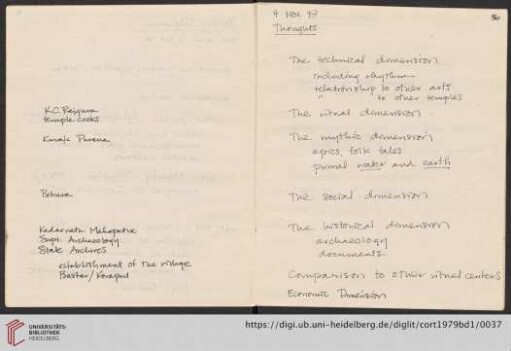 K.C. Rajguru
temple cooks
Behura
Kedarnath Mahapatra
Supt. Archaeology
State Archives
establishment of the village
Bastar/Koraput
4 Nov. 79
Thoughts
The technical dimension
including rhythm
relationship to other arts
" to other temples
The ritual dimension
The mythic dimension
epics, folk tales
primal water and earth
The social dimension
The historical dimension
archaeology
documents
Comparison to other ritual centers
Economic Dimension
UNIVERSITÄTS-
BIBLIOTHEK
HEIDELBERG
https://digi.ub.uni-heidelberg.de/diglit/cort1979bd1/0037